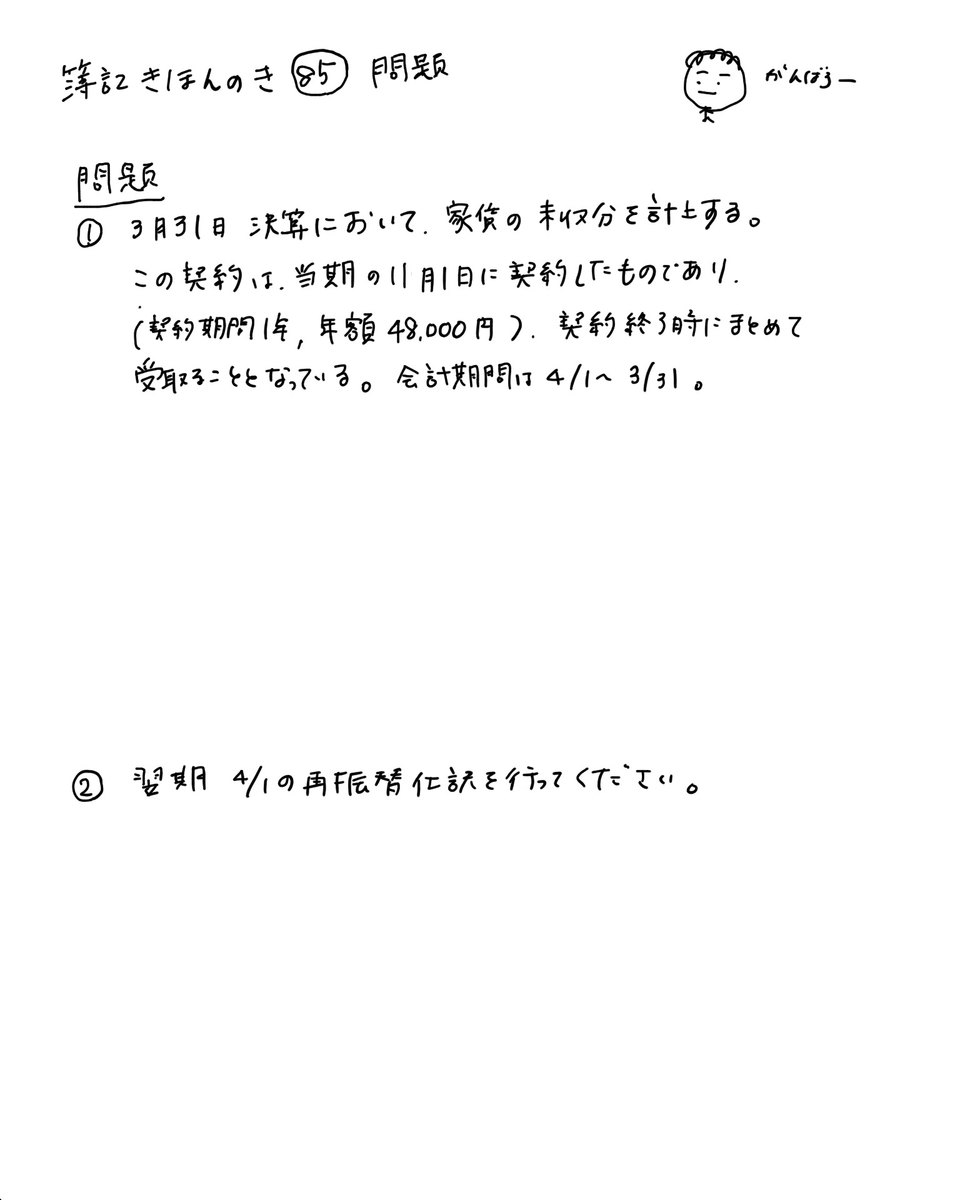 簿記きほんのき 85 問題
がんばろー
問題
① 3月31日 決算において、家賃の未収分を計上する。
この契約は、当期の11月1日に契約したものであり、
(契約期間1年, 年額48,000円)、契約終了時にまとめて
受取ることとなっている。会計期間は4/1〜3/31。
② 翌期 4/1の再振替仕訳を行ってください。